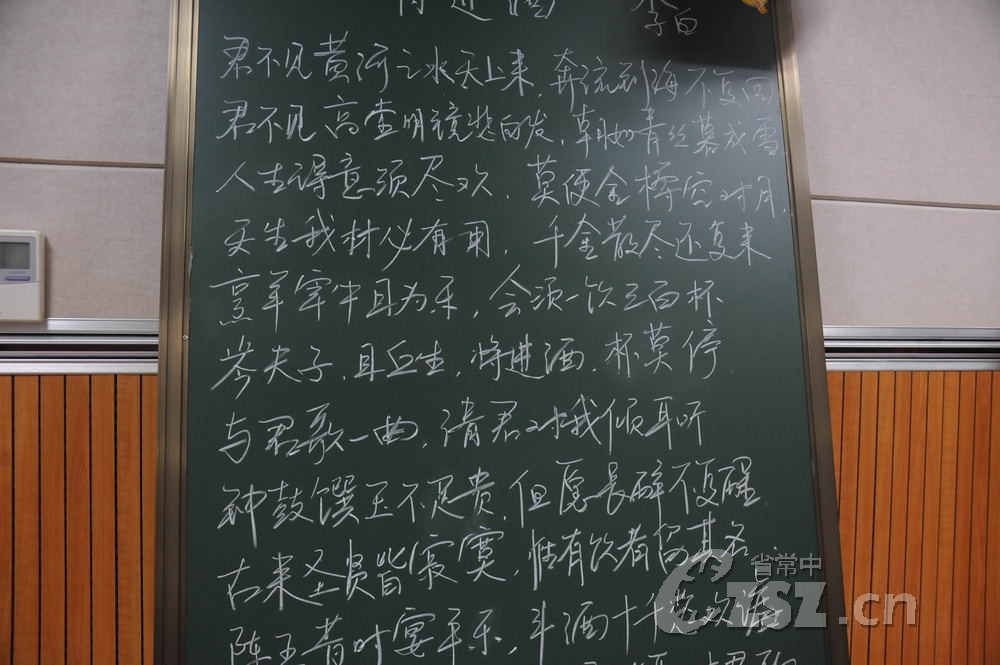 将进酒 李白
君不见黄河之水天上来,奔流到海不复回
君不见高堂明镜悲白发,朝如青丝暮成雪
人生得意须尽欢,莫使金樽空对月,
天生我材必有用,千金散尽还复来
烹羊宰牛且为乐,会须一饮三百杯
岑夫子,丹丘生,将进酒,杯莫停
与君歌一曲,请君对我倾耳听
钟鼓馔玉不足贵,但愿长醉不复醒
古来圣贤皆寂寞,惟有饮者留其名
陈王昔时宴平乐,斗酒十千恣欢谑
省常中
CZSZ.cn